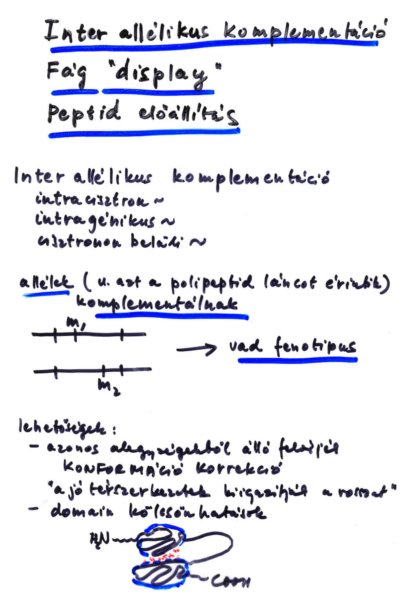 Inter allélikus komplementáció
Fág "display"
Peptid előállítás
Inter allélikus komplementáció
intracisztron ~
intragénikus ~
cisztronon belüli ~
allélek (u. azt a polipeptid láncot érintik)
komplementálnak
m1
→ vad fenotípus
m2
lehetőségek:
- azonos alegységekből álló
KONFORMÁCIÓ KORREKCIÓ
"a jó térszerkezetek kiigazítják a rosszat"
- domain kölcsönhatások
H2N
COOH